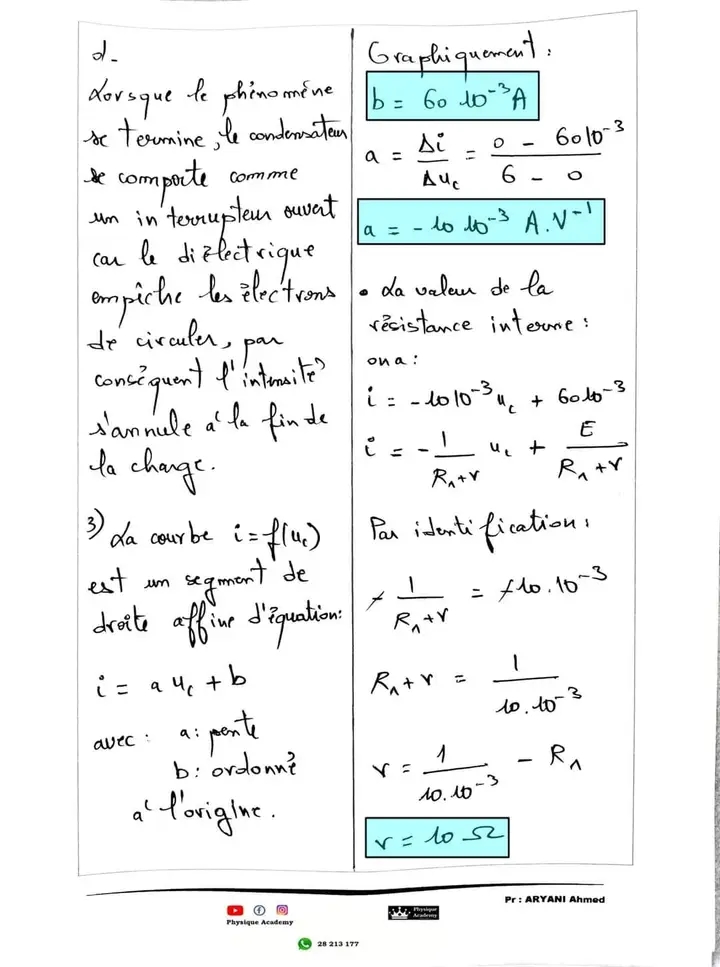 d-
Lorsque le phénomène
se termine, le condensateur
se comporte comme
un interrupteur ouvert
car le diélectrique
empêche les électrons
de circuler, par
conséquent l'intensité
s'annule à la fin de
la charge.
3) La courbe i = f(uc)
est un segment de
droite affine d'équation:
i = a uc + b
avec : a: pente
b: ordonné
à l'origine.
Graphiquement :
b = 60 10⁻³ A
a = Δi / Δuc = (0 - 60 10⁻³) / (6 - 0)
a = - 10 10⁻³ A.V⁻¹
• La valeur de la
résistance interne :
on a :
i = -10 10⁻³ uc + 60 10⁻³
i = - 1/(R₁+r) uc + E/(R₁+r)
Par identification :
- 1/(R₁+r) = -10.10⁻³
R₁+r = 1/(10.10⁻³)
r = 1/(10.10⁻³) - R₁
r = 10 Ω
Pr : ARYANI Ahmed
Physique Academy
Physique
Academy
28 213 177